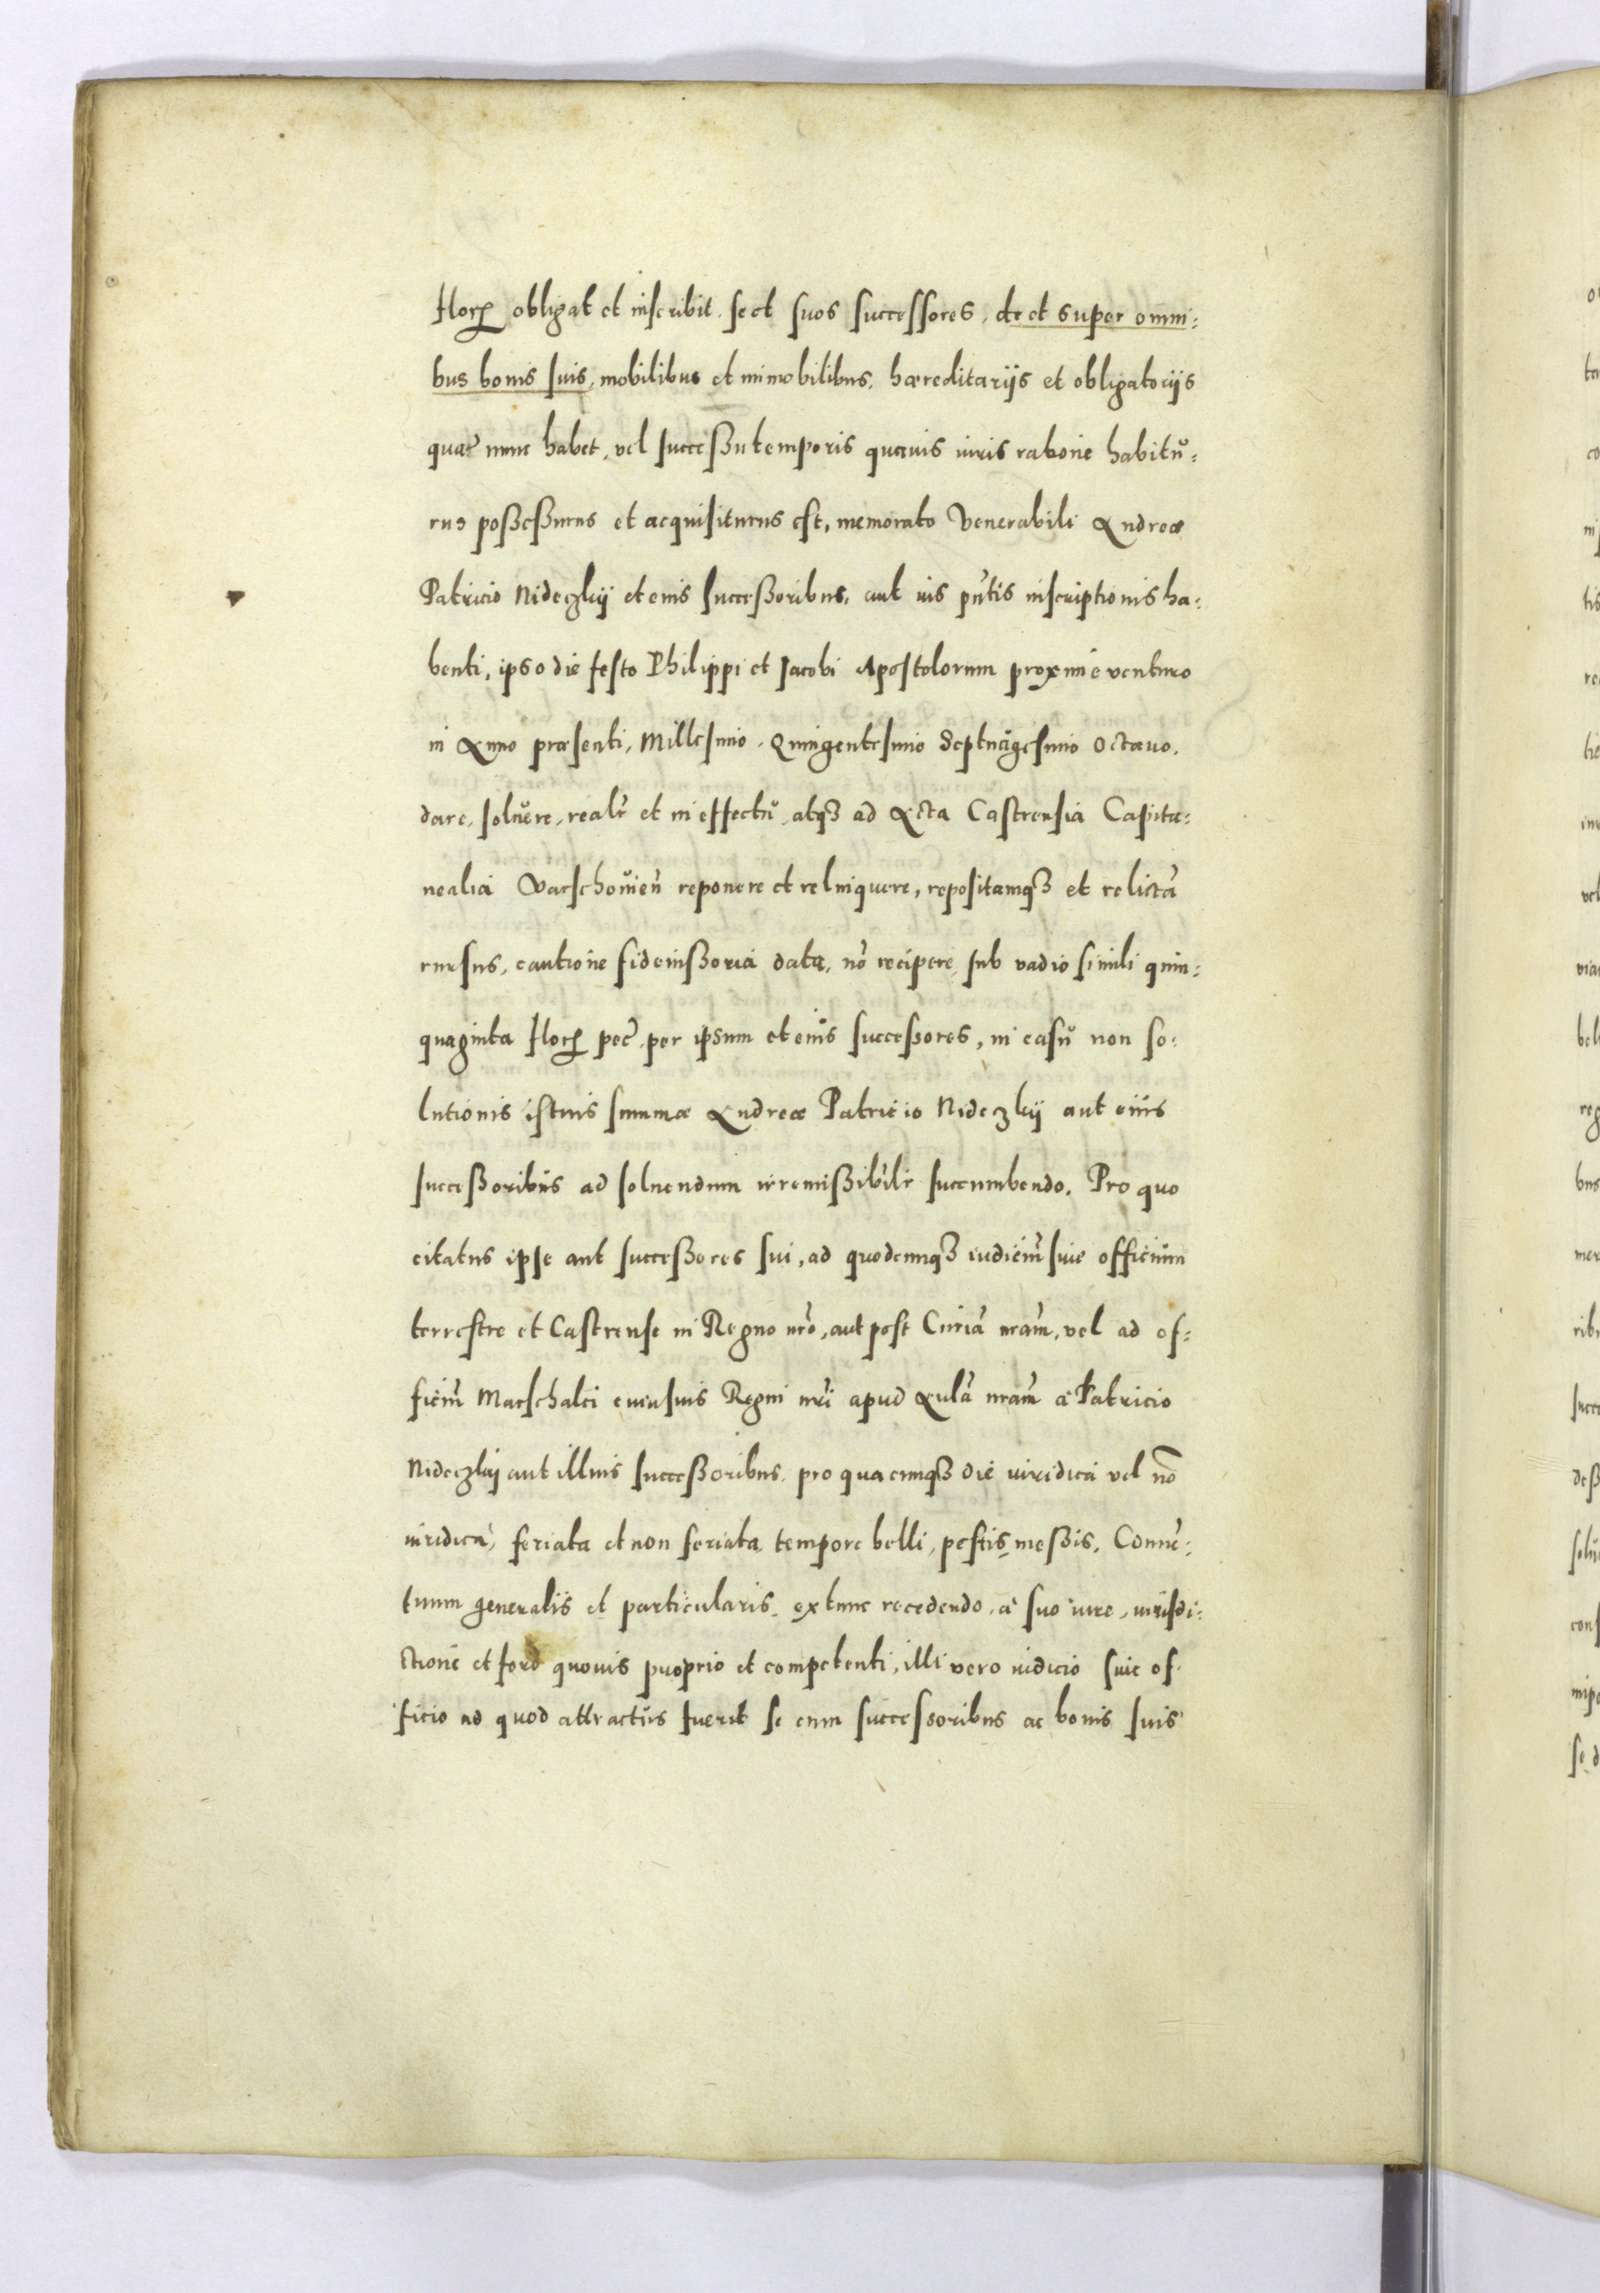 floreꝝ obligat et inscribit se et suos successores, de et super omni:
bus bonis suis, mobilibus et immobilibus, hæreditarijs et obligatorijs
quæ nunc habet, vel successu temporis quævis iuris ratione habitŭ:
rus possessurus et acquisiturus est, memorato Venerabili Andreæ
Patricio Nideczkij et eius successoribus, aut ius pñtis inscriptionis ha:
benti, ipso die festo Philippi et Jacobi Apostolorum proxime venturo
in Anno præsenti, Millesimo, Quingentesimo Septuagesimo Octauo,
dare, soluere, realr̃ et in effectu, atqꝫ ad Acta Castrensia Capita:
nealia Varschovieñ reponere et relinquere, repositamqꝫ et relictã
rursus, cautione fideiussoria data, nõ recipere, sub vadio simili quin:
quaginta floreꝝ pec̃ per ipsum et eius successores, in casu non so:
lutionis istius summæ Andreæ Patricio Nideczkij aut eius
successoribus ad soluendum irremissibilr̃ succumbendo. Pro quo
citatus ipse aut successores sui, ad quodcunqꝫ iudiciũ sive officium
terrestre et Castrense in Regno nr̃o, aut post Curiã nr̃am, vel ad of:
ficiũ Marschalci cuiusuis Regni nr̃i apud Aulã nr̃am à Patricio
Nideczkij aut illius successoribus, pro quacunqꝫ die iuridica vel nõ
iuridica, feriata et non feriata, tempore belli, pestis, messis, Conue:
tuum generalis et particularis, extunc recedendo, à suo iure, iurisdi:
ctione et foro quouis proprio et competenti, illi vero iudicio sive of:
ficio ad quod attractus fuerit se cum successoribus ac bonis suis